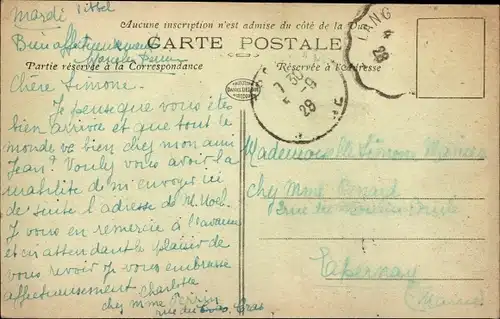 Mardi
Aucune inscription n'est admise du côté de la Vue
Bien affectueusement
CARTE POSTALE
Partie réservée à la Correspondance
Réservée à l'Adresse
ANG
4
28
7 30
5 - 9
28
Chère Simone.
Je pense que vous êtes
bien arrivée et que tout le
monde va bien chez mon ami
Jean? Voulez vous avoir la
mabilite de m'envoyer ici
de suite l'adresse de M. Noel.
Je vous en remercie à l'avance
et en attendant le plaisir de
vous revoir Je vous embrasse
affectueusement Charlotte
chez Mme
rue du Gras
Mademoiselle Simone
chez Mme
rue du Moulin
Epernay
(Marne)